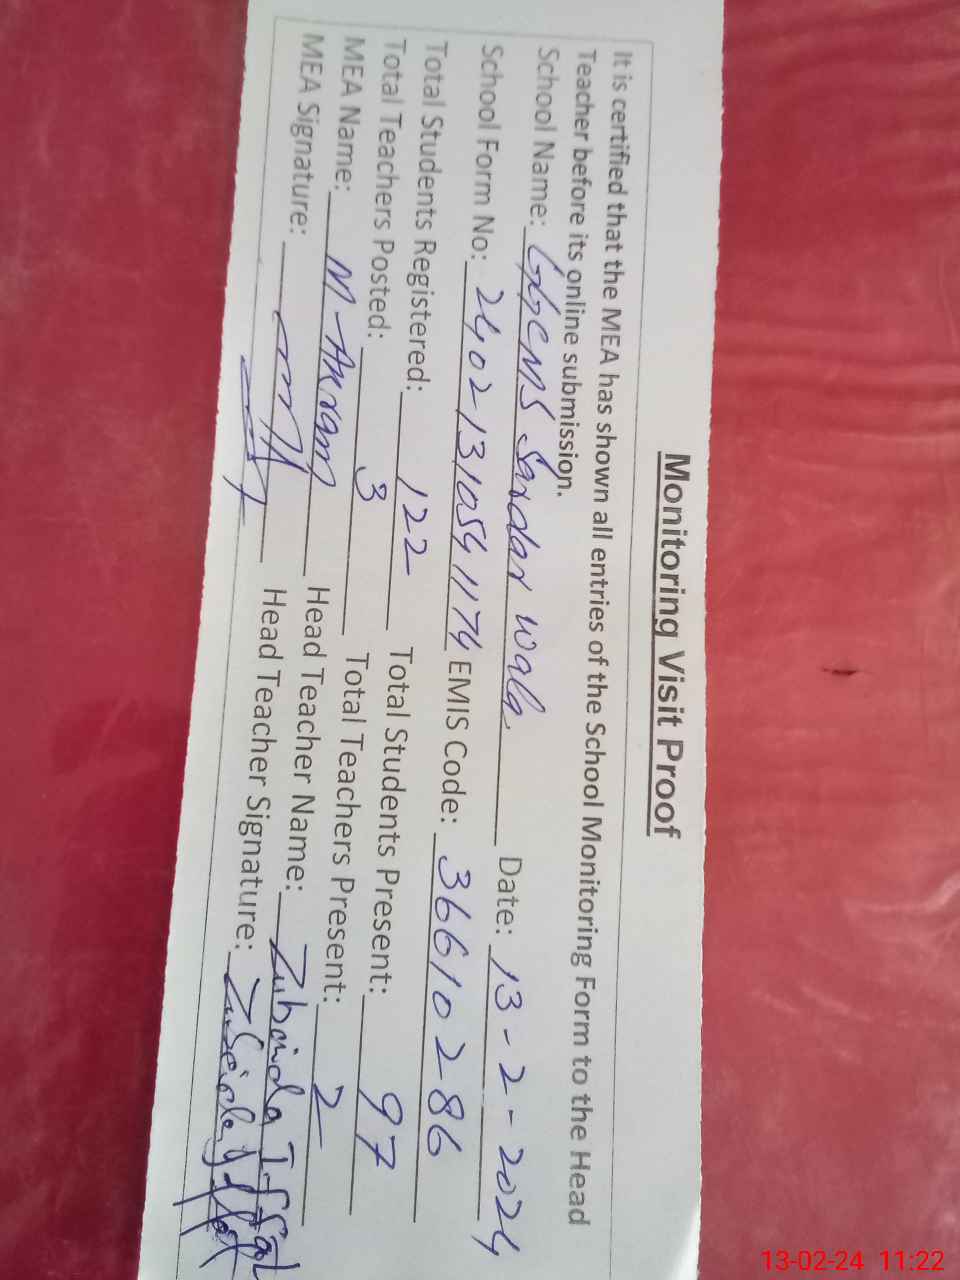 Monitoring Visit Proof
It is certified that the MEA has shown all entries of the School Monitoring Form to the Head
Teacher before its online submission.
School Name: GGCMS Sardar wala Date: 13-2-2024
School Form No: 24021310541174 EMIS Code: 36610286
Total Students Registered: 122 Total Students Present: 97
Total Teachers Posted: 3 Total Teachers Present: 2
MEA Name: M-Akram Head Teacher Name: Zubaida Iffat
MEA Signature: Head Teacher Signature:
13-02-24 11:22